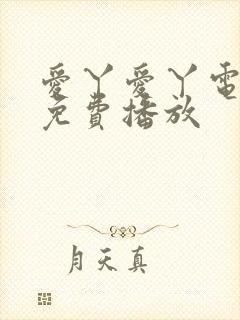 愛丫愛丫電
免費播放
月天真